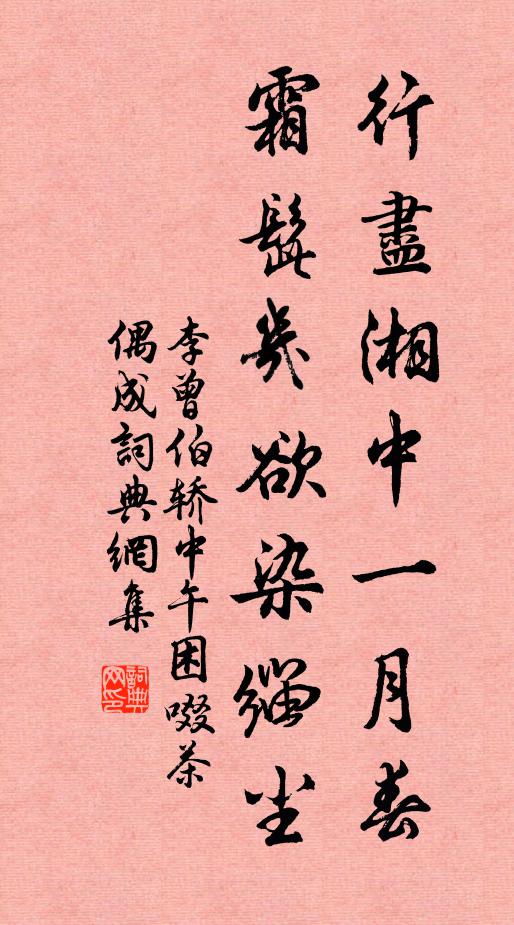 行盡湘中一月春
霜髭幾欲染緇塵
李曾伯轿中午困啜茶
偶成詞典網集
詞典网印